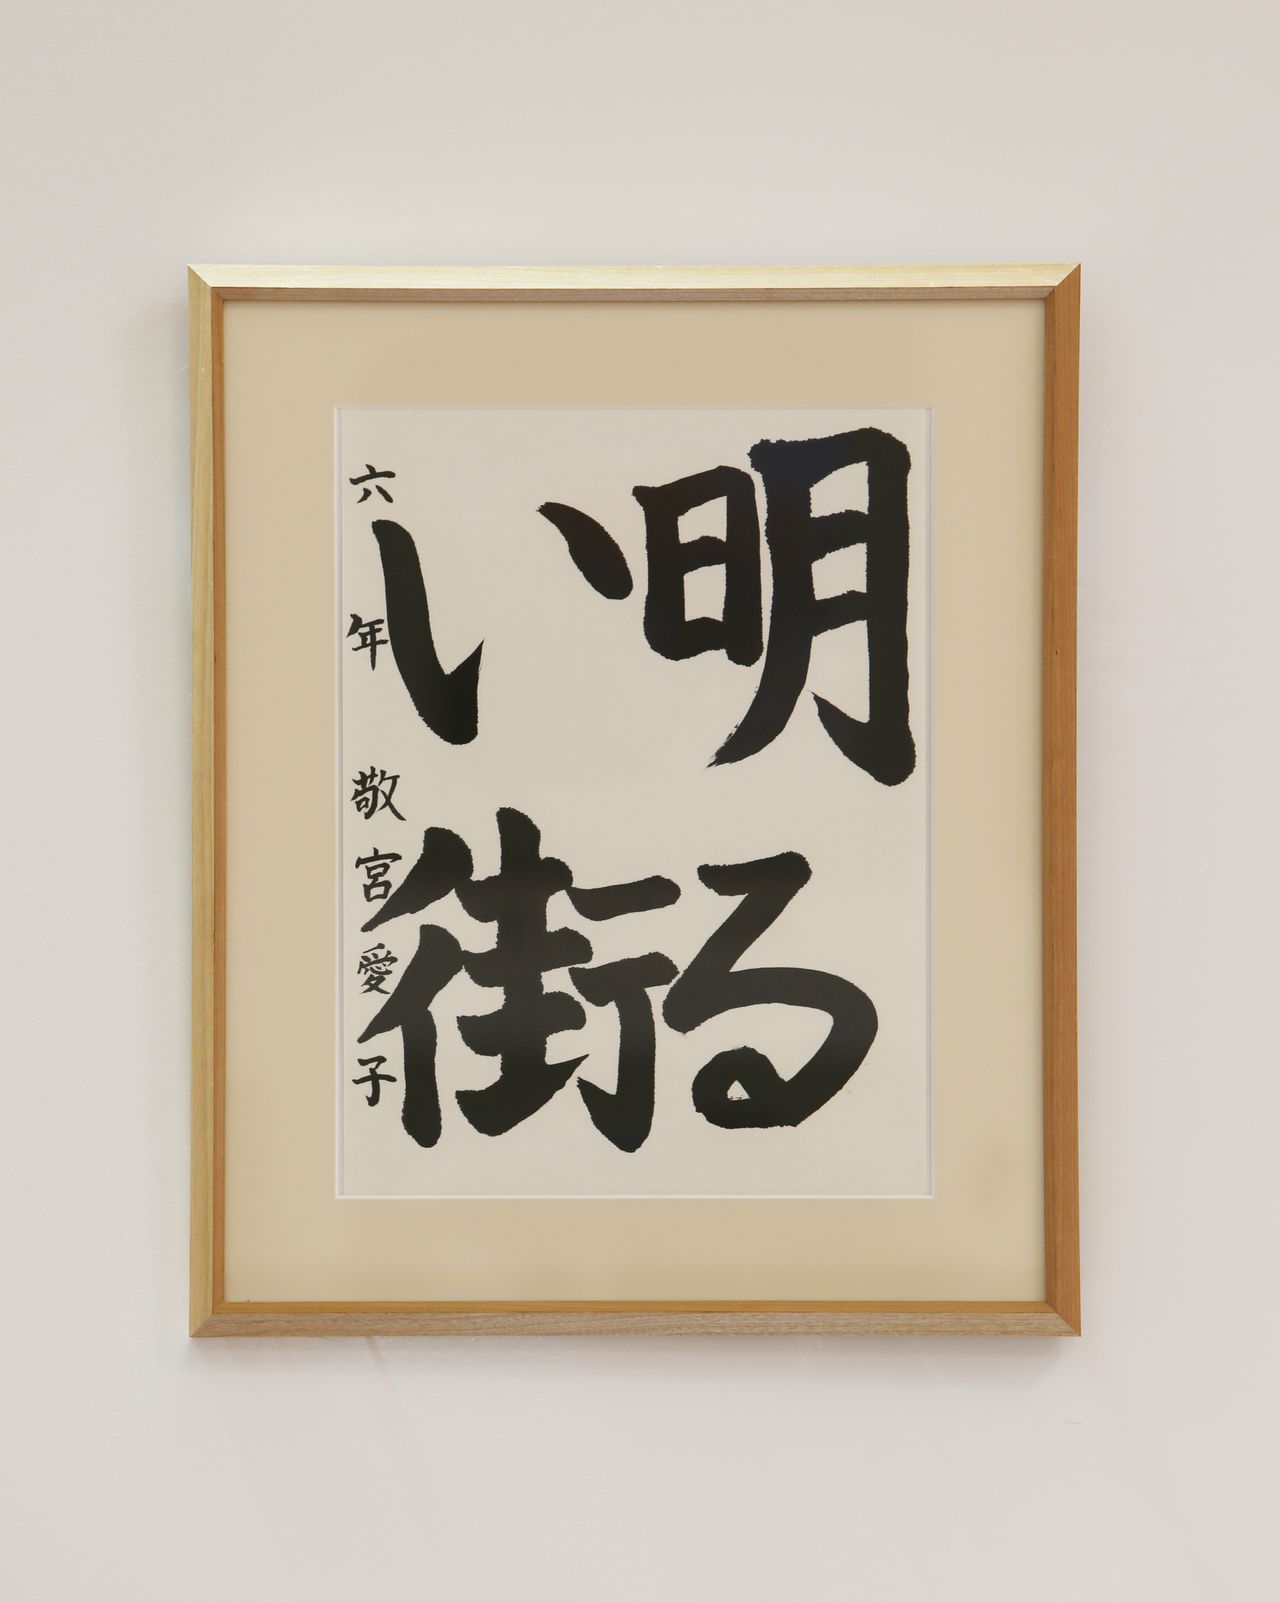 明る
い街
六年 敬宮愛子